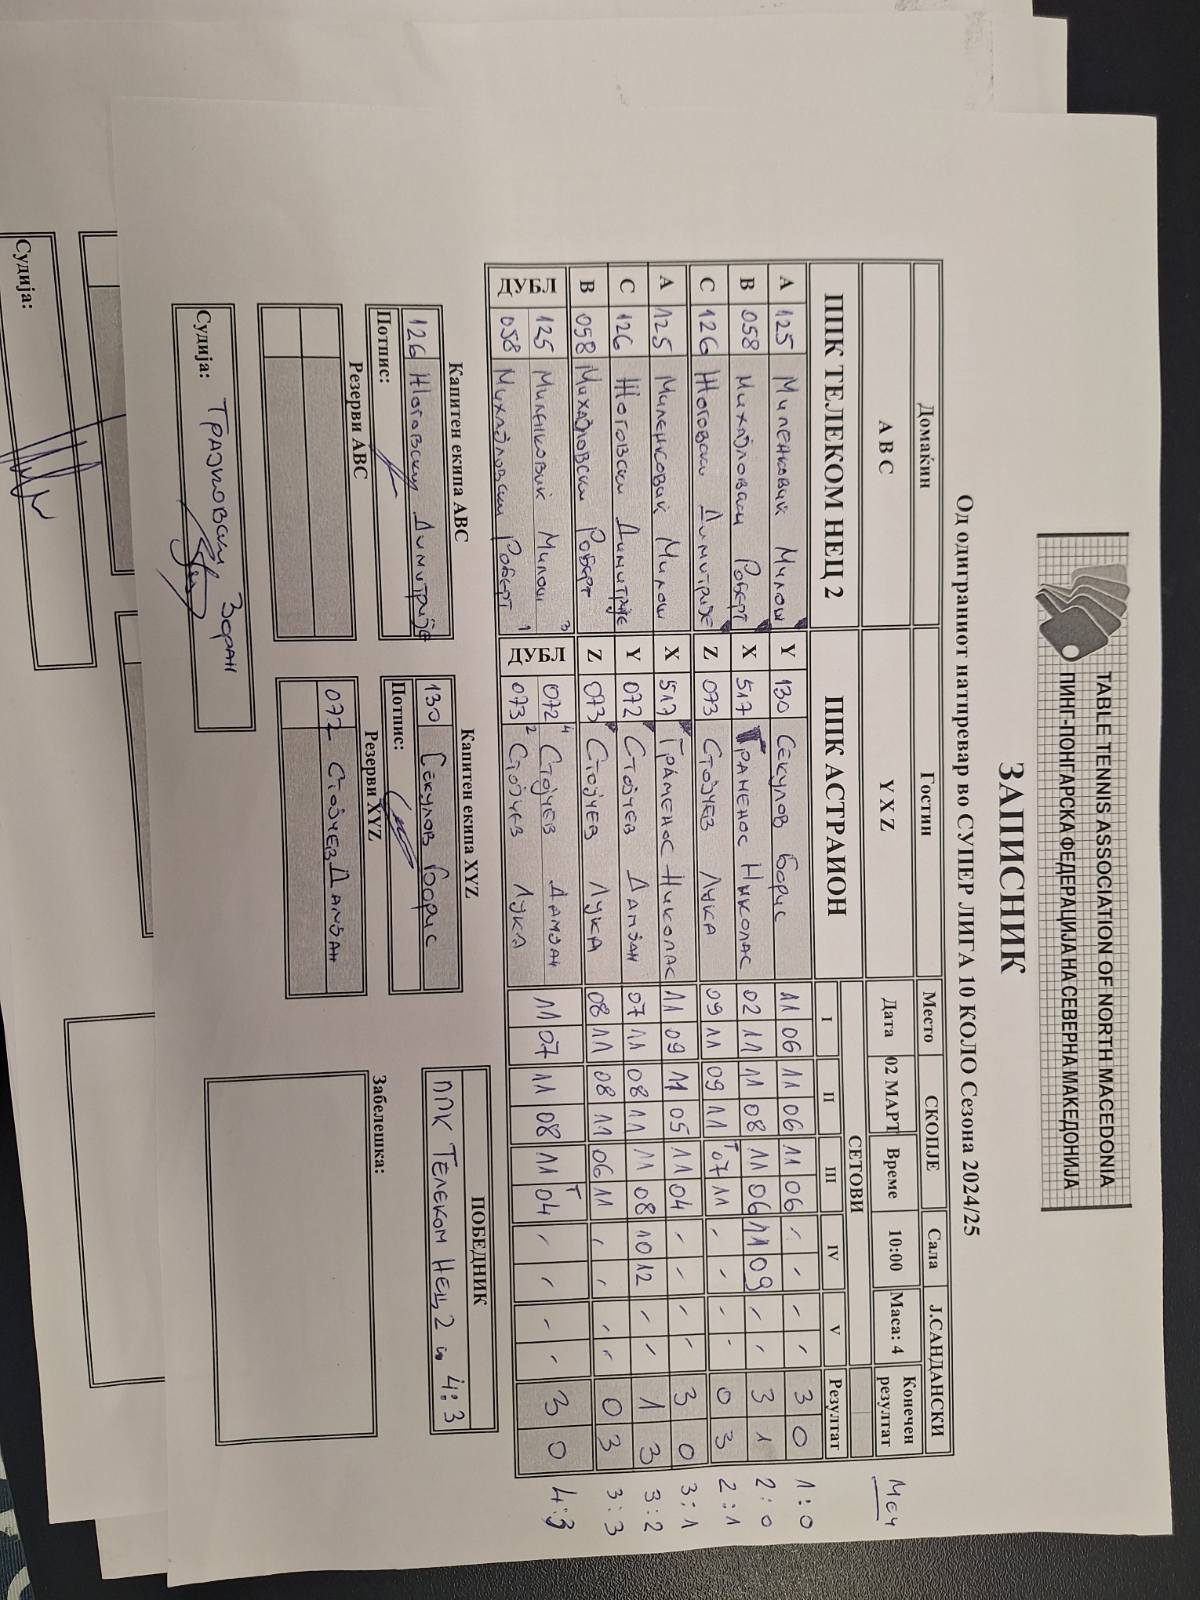 TABLE TENNIS ASSOCIATION OF NORTH MACEDONIA
ПИНГ-ПОНГАРСКА ФЕДЕРАЦИЈА НА СЕВЕРНА МАКЕДОНИЈА
ЗАПИСНИК
Од одиграниот натпревар во СУПЕР ЛИГА 10 КОЛО Сезона 2024/25
Домаќин Гостин Место СКОПЈЕ Сала Ј.САНДАНСКИ
A B C Y X Z Дата 02 МАРТ Време 10:00 Маса: 4 Конечен резултат Меч
ППК ТЕЛЕКОМ НЕЦ 2 ППК АСТРАИОН СЕТОВИ
I II III IV V Резултат
A 125 Миленковиќ Милош Y 130 Секулов Борис 11 06 11 06 11 06 - - - - 3 0 1:0
B 058 Михајловски Роберт X 517 Граменос Николас 02 11 11 08 11 06 11 09 - - 3 1 2:0
C 126 Жоговски Димитрије Z 073 Стојчев Лука 09 11 09 11 Т 07 11 - - - - 0 3 2:1
A 125 Миленковиќ Милош X 517 Граменос Николас 11 09 11 05 11 04 - - - - 3 0 3:1
C 126 Жоговски Димитрије Y 072 Стојчев Дамјан 07 11 08 11 11 08 10 12 - - 1 3 3:2
B 058 Михајловски Роберт Z 073 Стојчев Лука 08 11 08 11 06 11 - - - - 0 3 3:3
ДУБЛ 125 Миленковиќ Милош 3 ДУБЛ 072 4 Стојчев Дамјан 11 07 11 08 11 Т 04 - - - - 3 0 4:3
058 Михајловски Роберт 1 073 2 Стојчев Лука
Капитен екипа ABC Капитен екипа XYZ ПОБЕДНИК
126 Жоговски Димитрије 130 Секулов Борис ППК Телеком Нец 2 4:3
Потпис: Потпис:
Резерви ABC Резерви XYZ Забелешка:
072 Стојчев Дамјан
Судија: Трајковски Зоран
Судија: